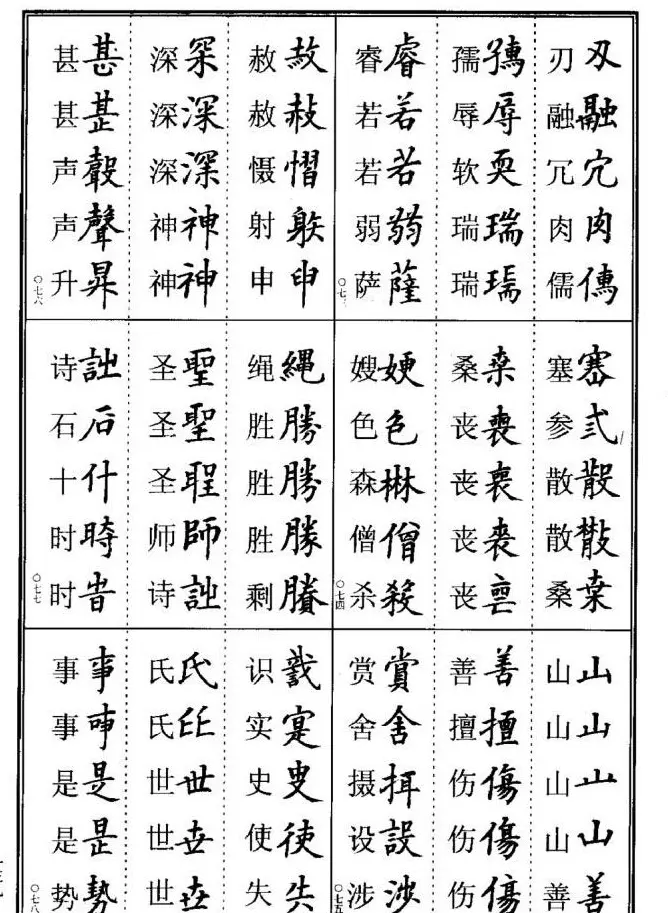 刃刃 融融 冗冗 肉肉 儒儒
孺孺 辱辱 软耎 瑞瑞 瑞瑞
睿睿 若若 若若 弱弱 萨薩
塞塞 参弎 散散 散散 桑桒
桑桒 丧喪 丧喪 丧喪 丧喪
嫂㛐 色色 森森 僧僧 杀殺
○七四
山山 山山 山山 山山 善善
善善 擅擅 伤傷 伤傷 伤傷
赏賞 舍舍 摄 设設 涉涉
○七五
赦赦 赦赦 慑慴 射躲 申申
深罙 深深 深深 神神 神神
甚甚 甚甚 声 声聲 升昇
○七六
绳縄 胜勝 胜勝 胜勝 剩賸
圣聖 圣聖 圣聖 师師 诗詘
诗詘 石石 十什 时時 时旹
○七七
识識 实寔 史史 使使 失失
氏氏 氏 世世 世世 世世
事事 事事 是是 是是 势勢
○七八